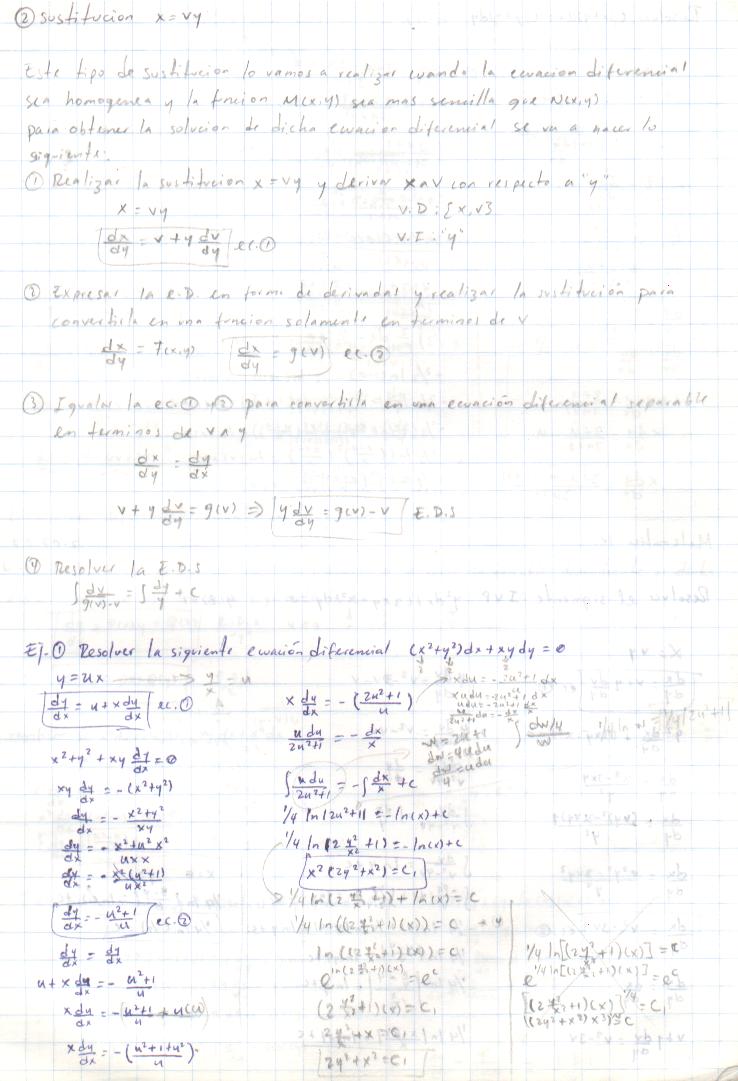 ② Sustitucion x = vy
Este tipo de sustitucion lo vamos a realizar cuando la ecuacion diferencial
sea homogenea y la funcion M(x,y) sea mas sencilla que N(x,y)
para obtener la solucion de dicha ecuacion diferencial se va a hacer lo
siguiente:
① Realizar la sustitucion x = vy y derivar x ∧ v con respecto a "y"
x = vy
V.D: {x, v}
dx/dy = v + y dv/dy ec. ①
V.I: "y"
② Expresar la E.D. en forma de derivadas y realizar la sustitución para
convertirla en una funcion solamente en terminos de v
dx/dy = f(x,y) dx/dy = g(v) ec. ②
③ Igualar la ec. ① y ② para convertirla en una ecuación diferencial separable
en terminos de v ∧ y
dx/dy = dy/dx
v + y dv/dy = g(v) ⇒ y dv/dy = g(v) - v E.D.S
④ Resolver la E.D.S
∫ dv/g(v)-v = ∫ dy/y + c
Ej. ① Resolver la siguiente ecuación diferencial (x²+y²)dx + xy dy = 0
y = ux → y/x = u
dy/dx = u + x du/dx ec. ①
x² + y² + xy dy/dx = 0
xy dy/dx = -(x²+y²)
dy/dx = - x²+y²/xy
dy/dx = - x²+u²x²/uxx
dy/dx = - x²(u²+1)/ux²
dy/dx = - u²+1/u ec. ②
dy/dx = dy/dx
u + x du/dx = - u²+1/u
x du/dx = - u²+1/u + u(u)
x du/dx = -(u²+1+u²/u)
x du/dx = -(2u²+1/u)
u du/2u²+1 = - dx/x
∫ u du/2u²+1 = -∫ dx/x + c
1/4 ln|2u²+1| = -ln(x)+c
1/4 ln(2 y²/x² +1) = -ln(x)+c
x²(2y²+x²) = C₁
1/4 ln(2 y²/x² +1) + ln(x) = c
1/4 ln((2 y²/x² +1)(x)) = c
ln((2 y²/x² +1)(x)) = c
e^ln(2 y²/x² +1)(x) = e^c
(2 y²/x² +1)(x) = C₁
2 y²/x + x = C₁
2y² + x² = C₁
x du = - 2u²+1/u dx
w = 2u²+1
dw = 4u du
dw/4 = u du
∫ dw/4/w
1/4 ln[(2 y²/x² +1)(x)] = c
e^1/4 ln[(2 y²/x² +1)(x)] = e^c
[(2 y²/x² +1)(x)]^1/4 = C₁